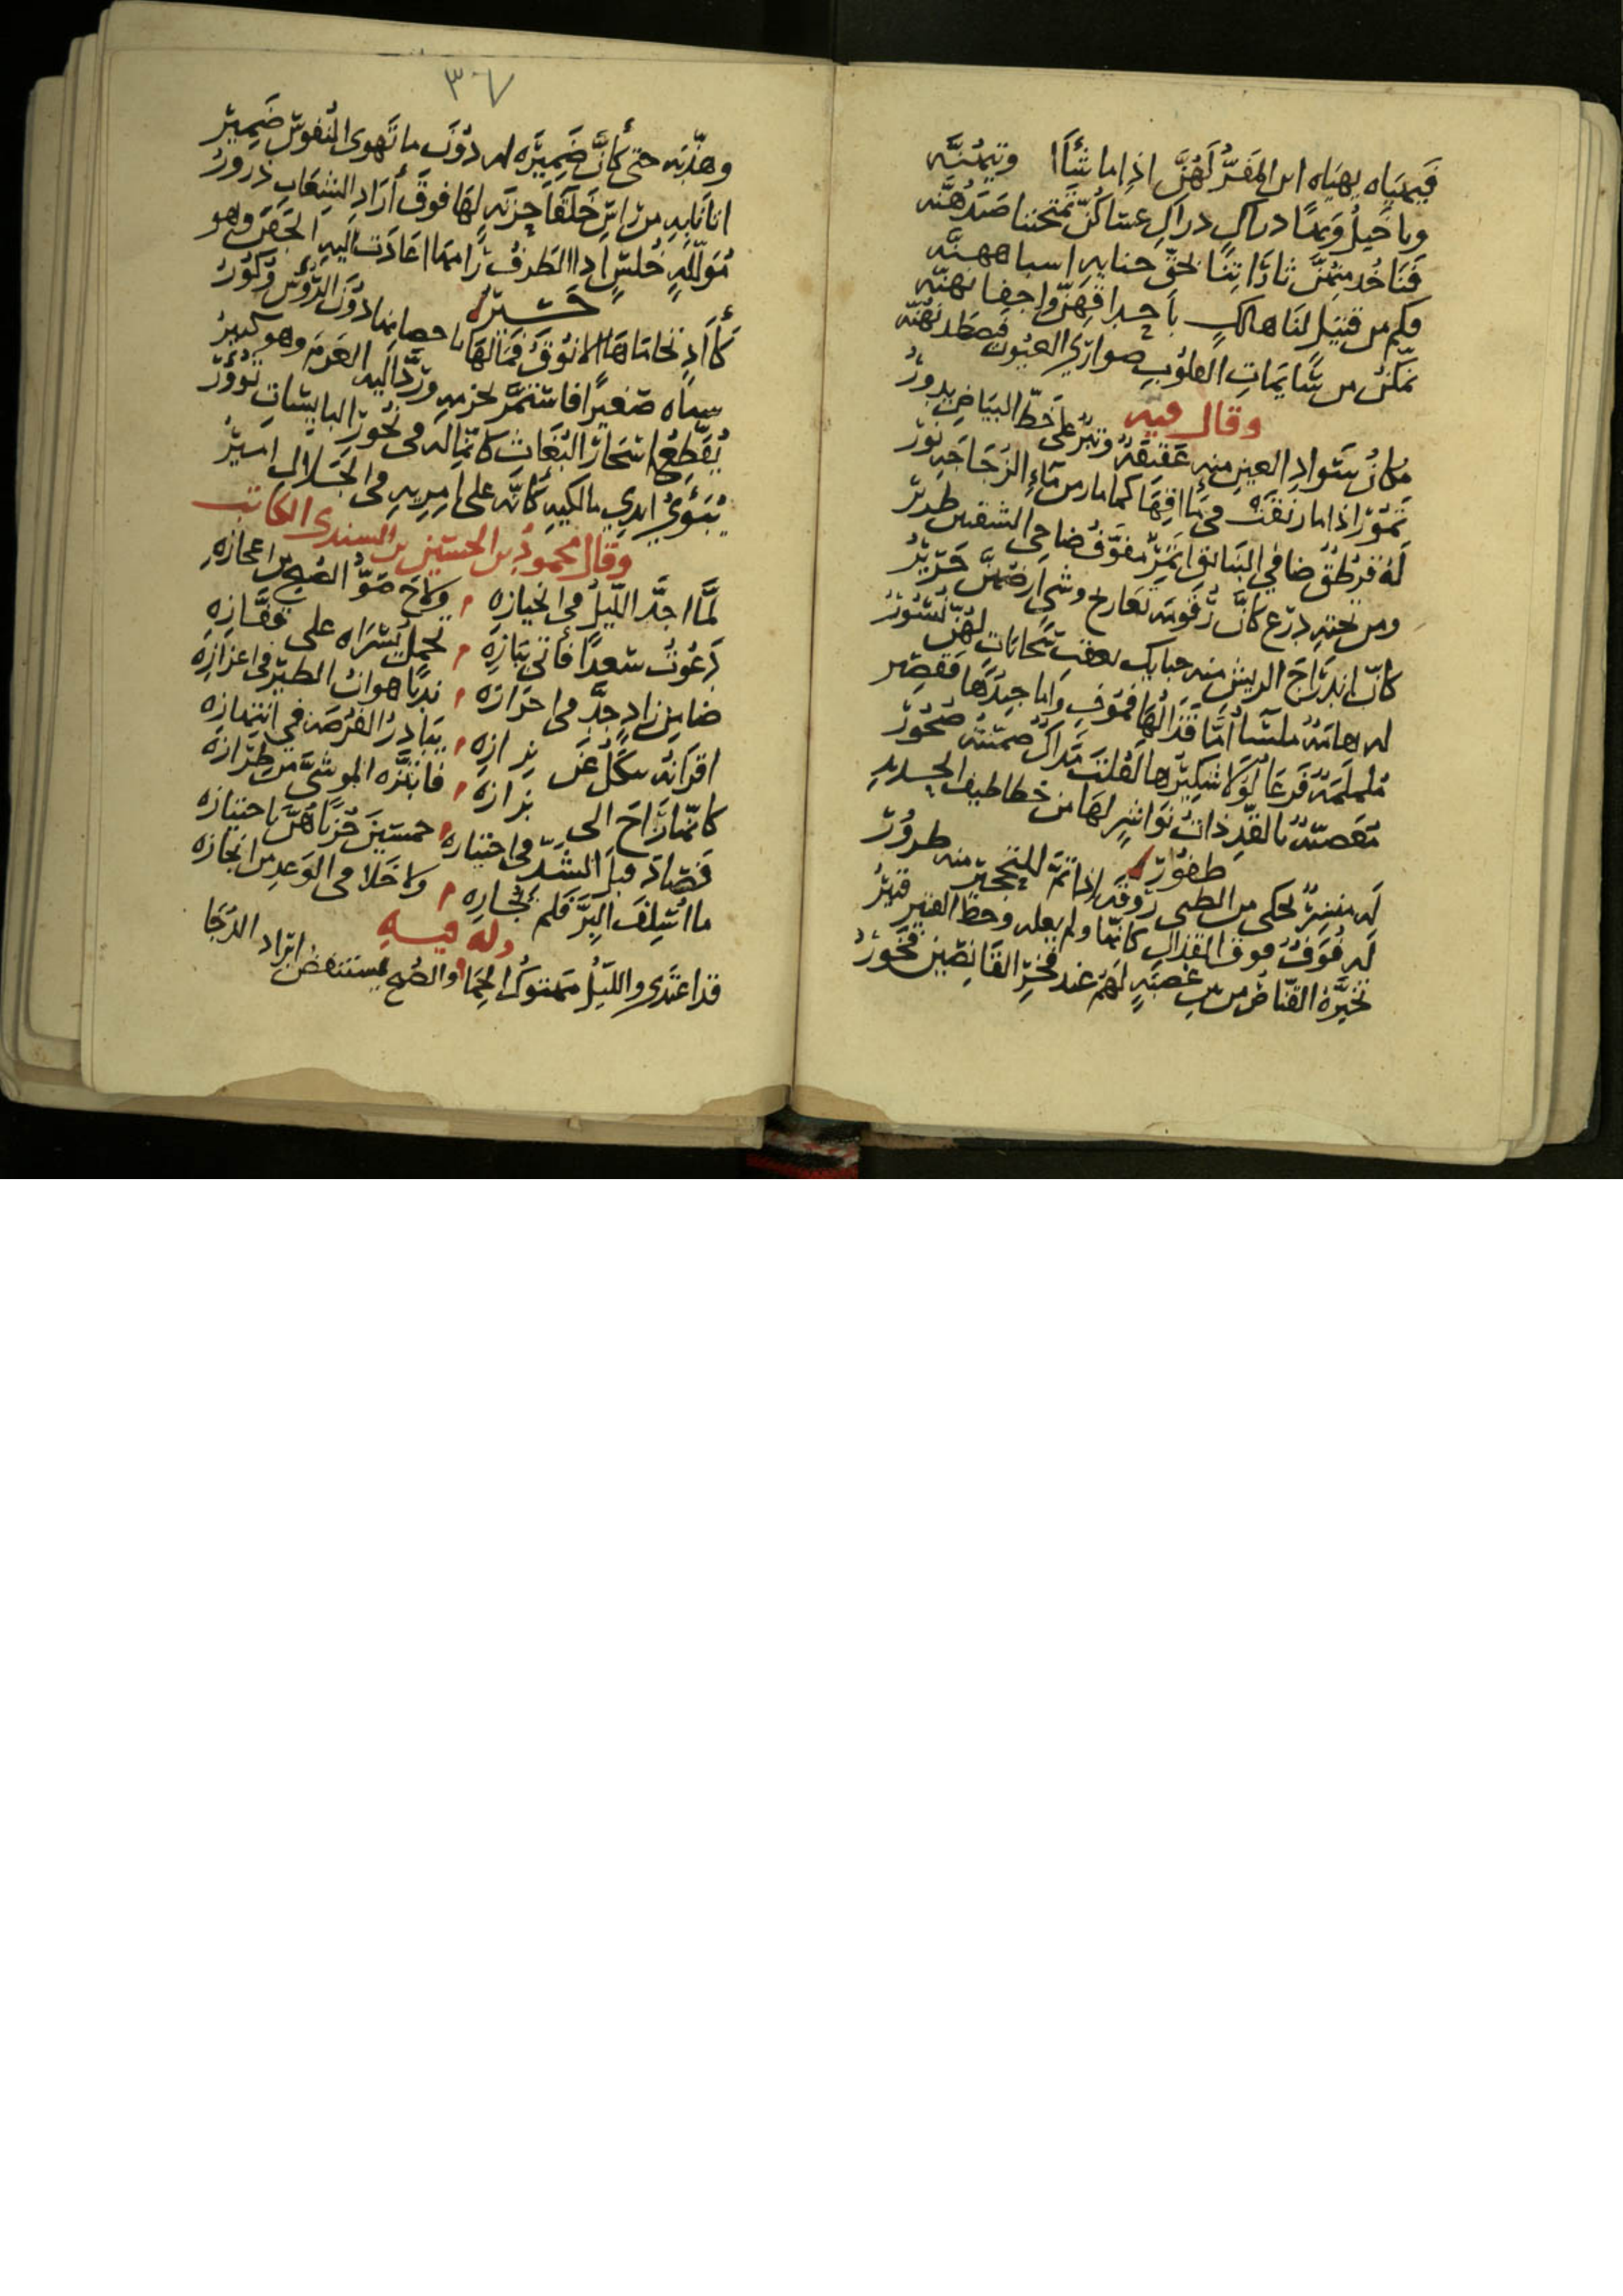 فيهياه يهياه اين المفرّ لهنّ اذا ما شأا وتيمُنَّه
ويا خيلُ ويدًا دراكِ دراكِ عساكنّ تمتحننا صيدهنّه
فناخذ منهنّ ثاراتنا بحقّ جنايه اسيا ههنّه
فكم من قتيل لنا هالك باجر اقهنّ واجفانهنّه
تمكّن من سايمات القلوب صواري العيون فصطدنهنّه
وقال فيه
مكان سواد العين منه عقيقةٌ وتبرٌ على خطّ البياض يدورُ
تمور اذا ما رنقت في مااقها كما مار من ماء الزجاجه نور
له قرطق ضافي البنايق انمر مفوف ضاحي الشقتين طرير
ومن تحته درع كانّ رقومه تعاريج وشي ارضهنّ حرير
كانّ اندراج الريش منه حبايك بعقب سحابات لهنّ نشور
له هامة ملساء امّا قذالها فموف واما جيدها فقصير
ململمة فرعا لولا شكيرها لقلت مداك ضمنته صخور
معصبة بالقدّ ذات نواشر لها من خطاطيف الحديد
ظفور
له منسر يحكي من الظبي روقه اذا تمّ للتحجير منه طرور
له فوف فوق القذال كانما ولم يعله وخط القتير قتير
تخيّره القناص من بين عصبة لهم عند فخر القانصين فخور
٣٧
وهذّبه حتى كأنّ ضميره له دون ما تهوى النفوس ضمير
اتانا به من راس خلقا جزنه لها فوق أراد الشعاب ذرور
مولله خلس اذا الطرف رامها اعادت اليه الجفن وهو
حسير
كأاد تحاماها الانوق فما لها باحصانها دون الرؤس وكور
سباه صغيرًا فاستمر لحزمه وردّ اليه العزم وهو كبير
يقطع اسحار البغاث كانما له في نحور البايسات ثؤور
يبوي ايدي مالكيه كانّه على امريه في الجلال امير
وقال محمود بن الحسين بن السندي الكاتب
لمّا اجدّ الليل في انحيازه ولاح ضوّ الصبح من اعجازه
دعوت سعدًا فأتى ببازه يحمل يسراه على قفّازه
ضامن زاد جدّ في احرازه ندبًا هوان الطير في اعزازه
اقرانه تنكل عن برازه يبادر الفرصة في انتهازه
كانما راح الى بزازه فابتزّه الموشيّ من طرازه
فصاد قبل الشدّ في اختياره خمسين حزناهنّ باحتيازه
ما استلف البزّ فلم يجاره ولا خلا في الوعد من انجازه
وله فيه
قد اغتدي والليل مهتوك الحما والصبح يستنهض ابراد الدجا